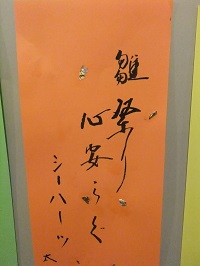 雛祭り
心安らぐ
シーハーツ
太